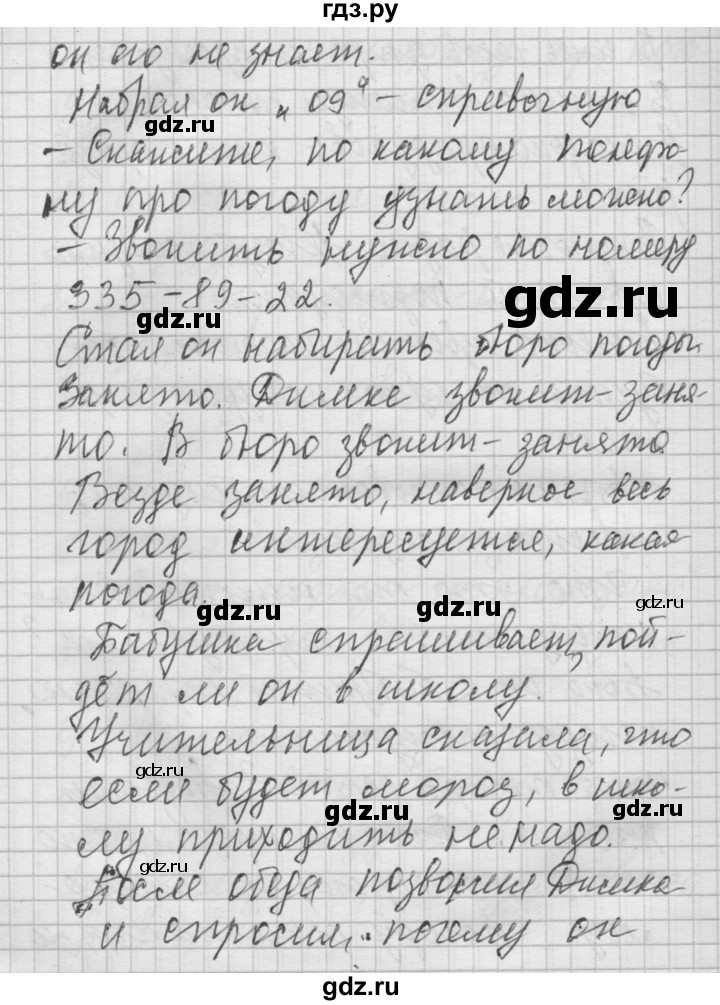 гдз.ру
он его не знает.
Набрал он „09“ – справочную
– Скажите, по какому телефо-
ну про погоду узнать можно?
– Звонить нужно по номеру
335-89-22.
Стал он набирать бюро погоды.
Занято. Димке звонит – заня-
то. В бюро звонит – занято.
Везде занято, наверное весь
город интересуется, какая
погода.
Бабушка спрашивает, пой-
дёт ли он в школу.
Учительница сказала, что
если будет мороз, в шко-
лу приходить не надо.
После обеда позвонил Димка
и спросил, почему он
gdz.ru
gdz.ru
gdz.ru
gdz.ru
gdz.ru
gdz.ru
gdz.ru
gdz.ru
gdz.ru
gdz.ru
gdz.ru
gdz.ru
gdz.ru
gdz.ru